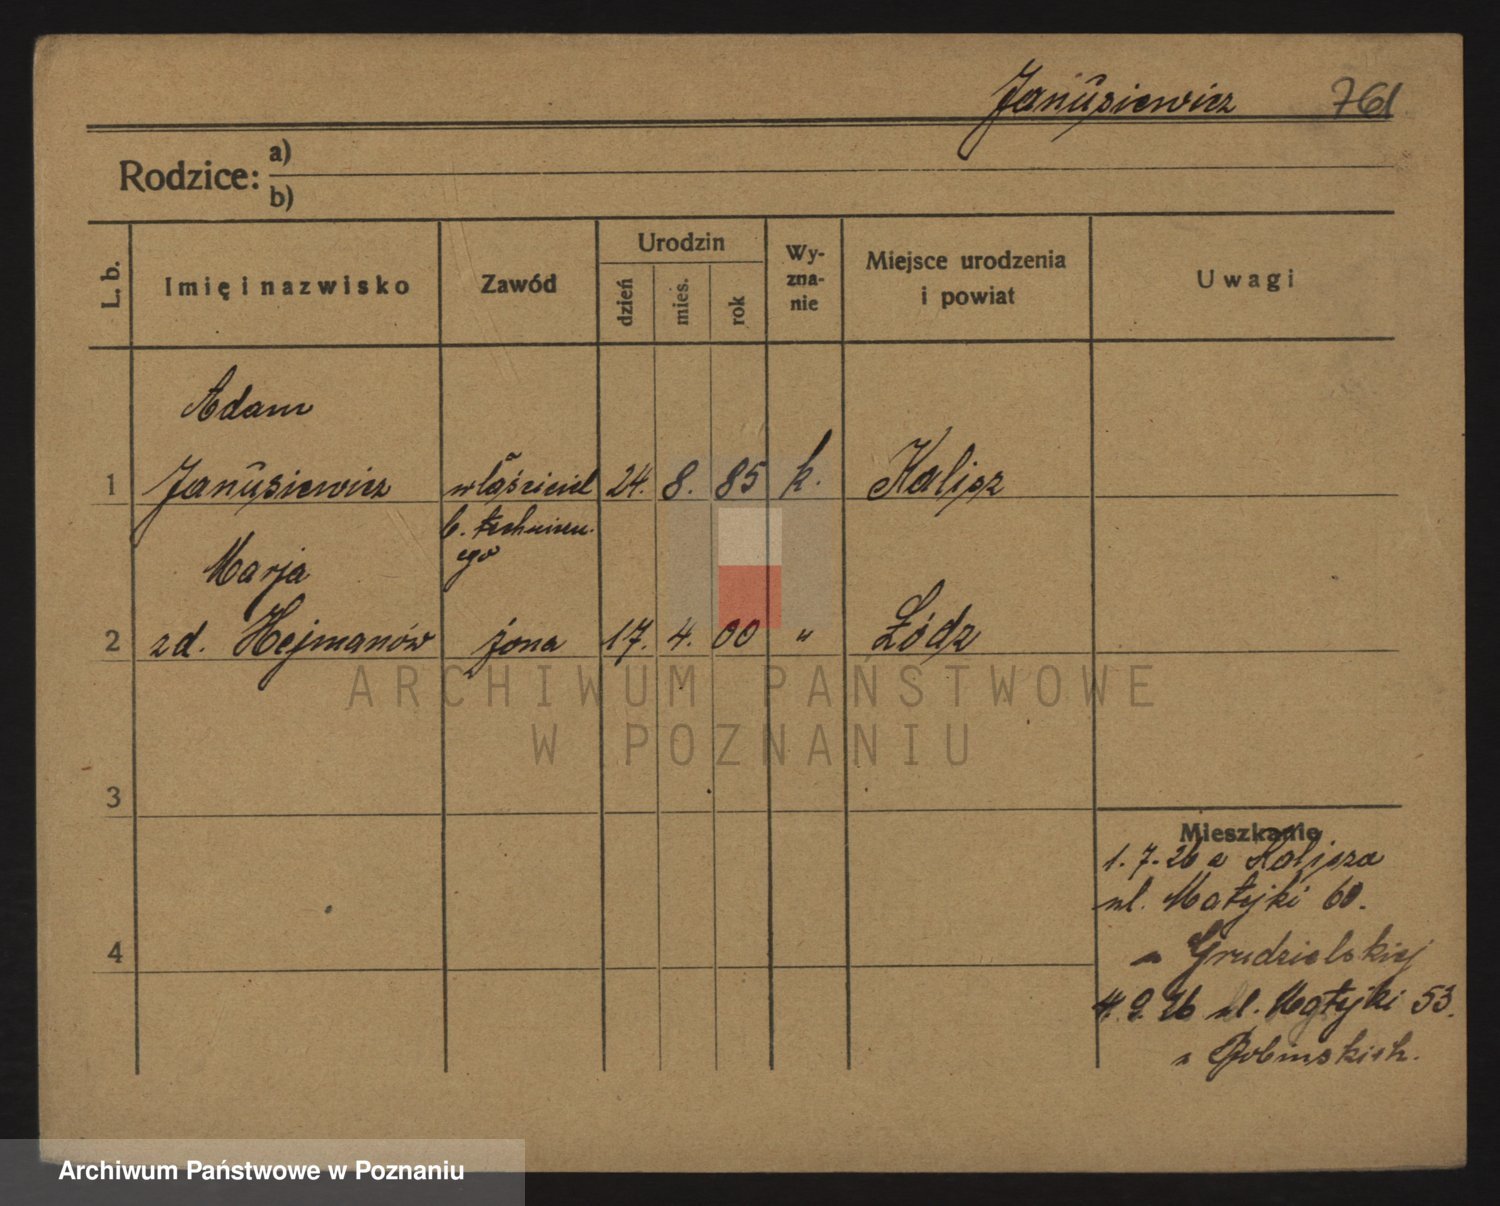 Janusiewicz 761
Rodzice: a)
b)
L. b. Imię i nazwisko Zawód Urodzin dzień mies. rok Wy-zna-nie Miejsce urodzenia i powiat Uwagi
Adam
1 Janusiewicz właściciel 24. 8. 85 k. Kalisz
b. techniczn
ego
Marja
2 zd. Hejmanów żona 17. 4. 00 " Łódz
ARCHIWUM PAŃSTWOWE
W POZNANIU
3
Mieszkanie
1. 7. 26 z Kalisza
ul. Matejki 60.
Grudzielskiej
4
4. 9. 26 ul. Matejki 53.
Archiwum Państwowe w Poznaniu